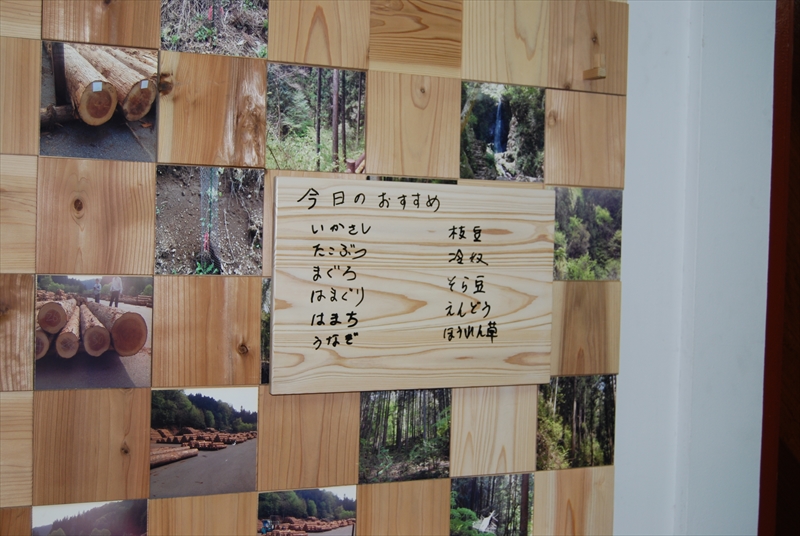 今日のおすすめ
いかさし
たこぶつ
まぐろ
はまぐり
はまち
うなぎ
枝豆
冷奴
そら豆
えんどう
ほうれん草